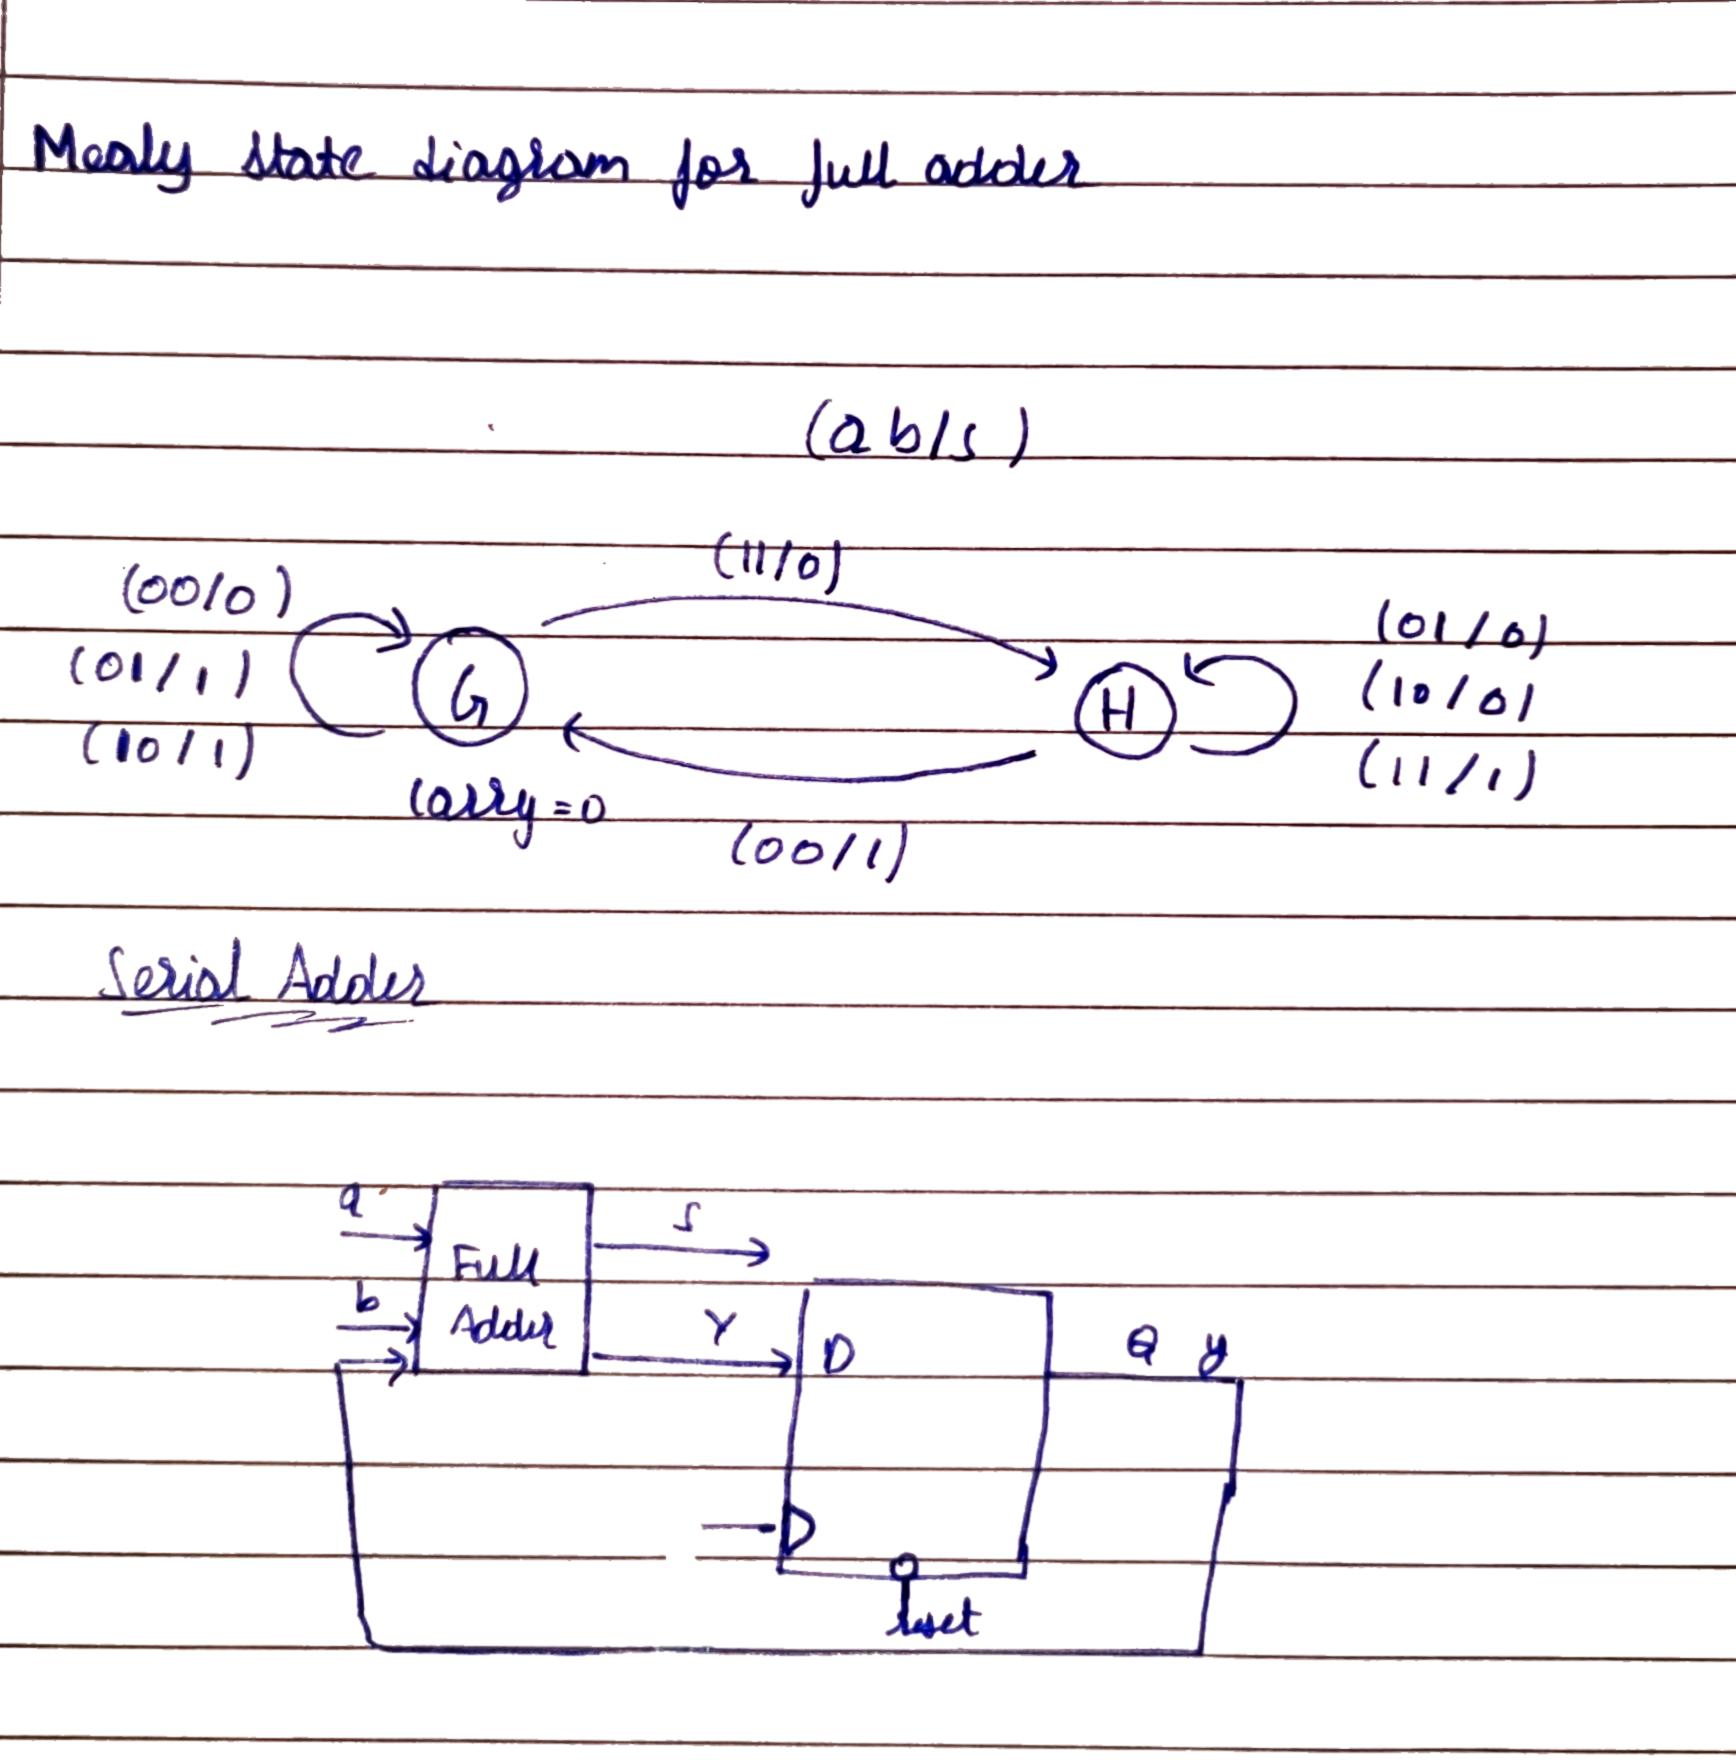 Mealy state diagram for full adder
(ab/s)
(11/0)
(00/0)
(01/0)
(01/1)
G
H
(10/0)
(10/1)
(11/1)
carry=0
(00/1)
Serial Adder
a
s
Full
b
Adder
Y
D
Q y
reset